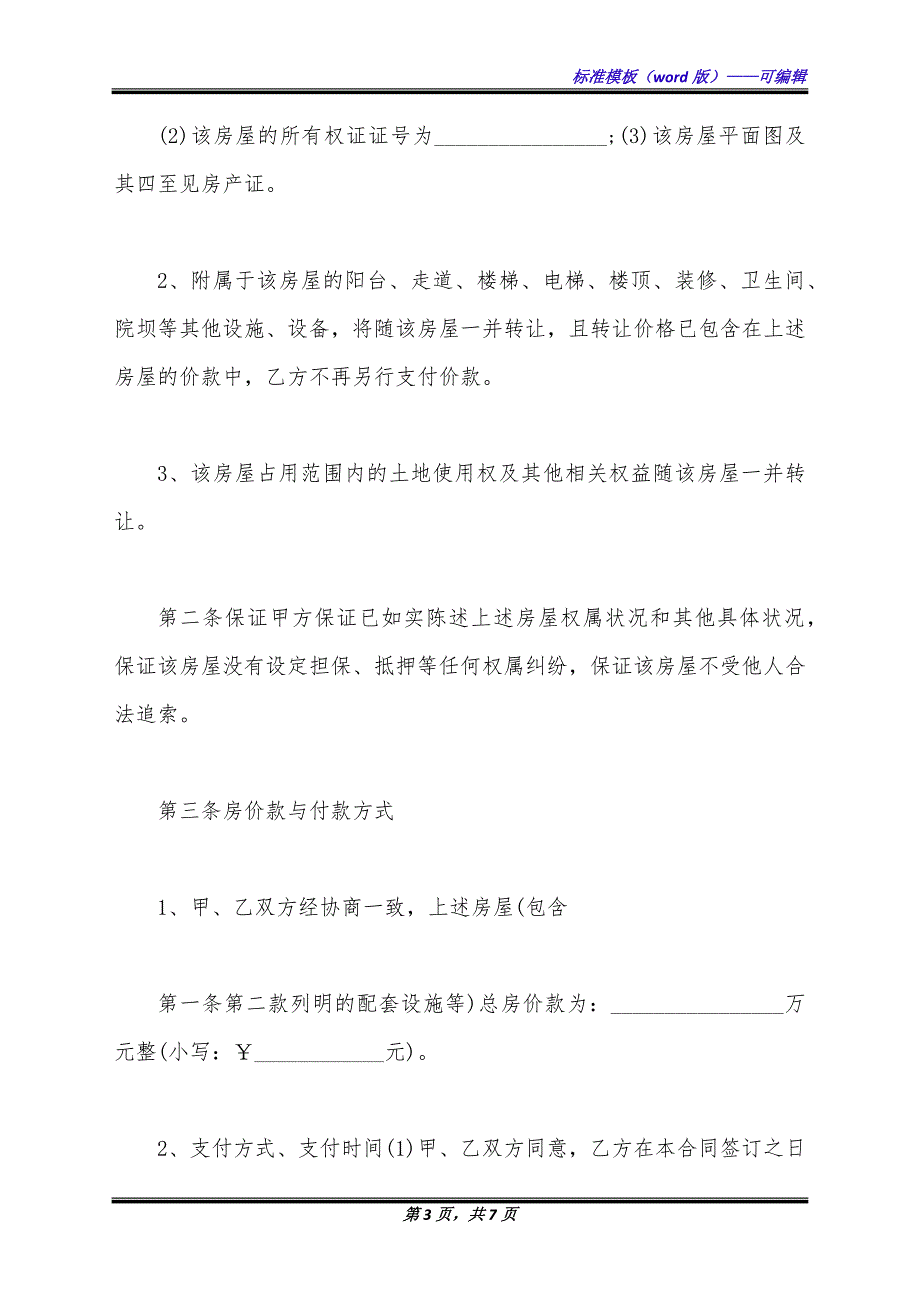 标准模板（word 版）——可编辑
(2)该房屋的所有权证证号为________________;(3)该房屋平面图及
其四至见房产证。
2、附属于该房屋的阳台、走道、楼梯、电梯、楼顶、装修、卫生间、
院坝等其他设施、设备，将随该房屋一并转让，且转让价格已包含在上述
房屋的价款中，乙方不再另行支付价款。
3、该房屋占用范围内的土地使用权及其他相关权益随该房屋一并转
让。
第二条保证甲方保证已如实陈述上述房屋权属状况和其他具体状况，
保证该房屋没有设定担保、抵押等任何权属纠纷，保证该房屋不受他人合
法追索。
第三条房价款与付款方式
1、甲、乙双方经协商一致，上述房屋(包含
第一条第二款列明的配套设施等)总房价款为：________________万
元整(小写：￥____________元)。
2、支付方式、支付时间(1)甲、乙双方同意，乙方在本合同签订之日
第 3 页，共 7 页